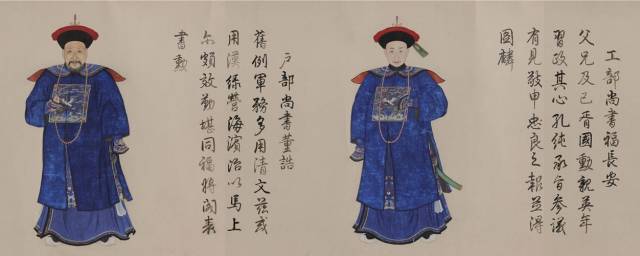 工部尚書福長安
父兄及己胥國勳親英年
習政其心孔純承旨參議
有見敬申忠良之報並得
圖麟
戶部尚書董誥
舊例軍務多用清文茲或
用漢綠營海濱治以馬上
亦頗效勤堪同福將閣表
書勳